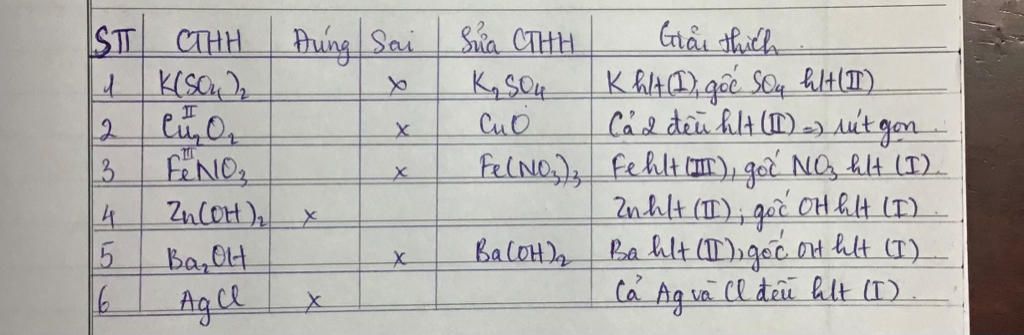 STT CTHH Đúng Sai Sửa CTHH Giải thích
1 K(SO₄)₂ x K₂SO₄ K hlt (I), gốc SO₄ hlt (II)
II
2 Cu₂O₂ x CuO Cả 2 đều hlt (II) => rút gọn.
III
3 FeNO₃ x Fe(NO₃)₃ Fe hlt (III), gốc NO₃ hlt (I).
4 Zn(OH)₂ x Zn hlt (II), gốc OH hlt (I)
5 Ba₂OH x Ba(OH)₂ Ba hlt (II), gốc OH hlt (I)
6 AgCl x Cả Ag và Cl đều hlt (I).